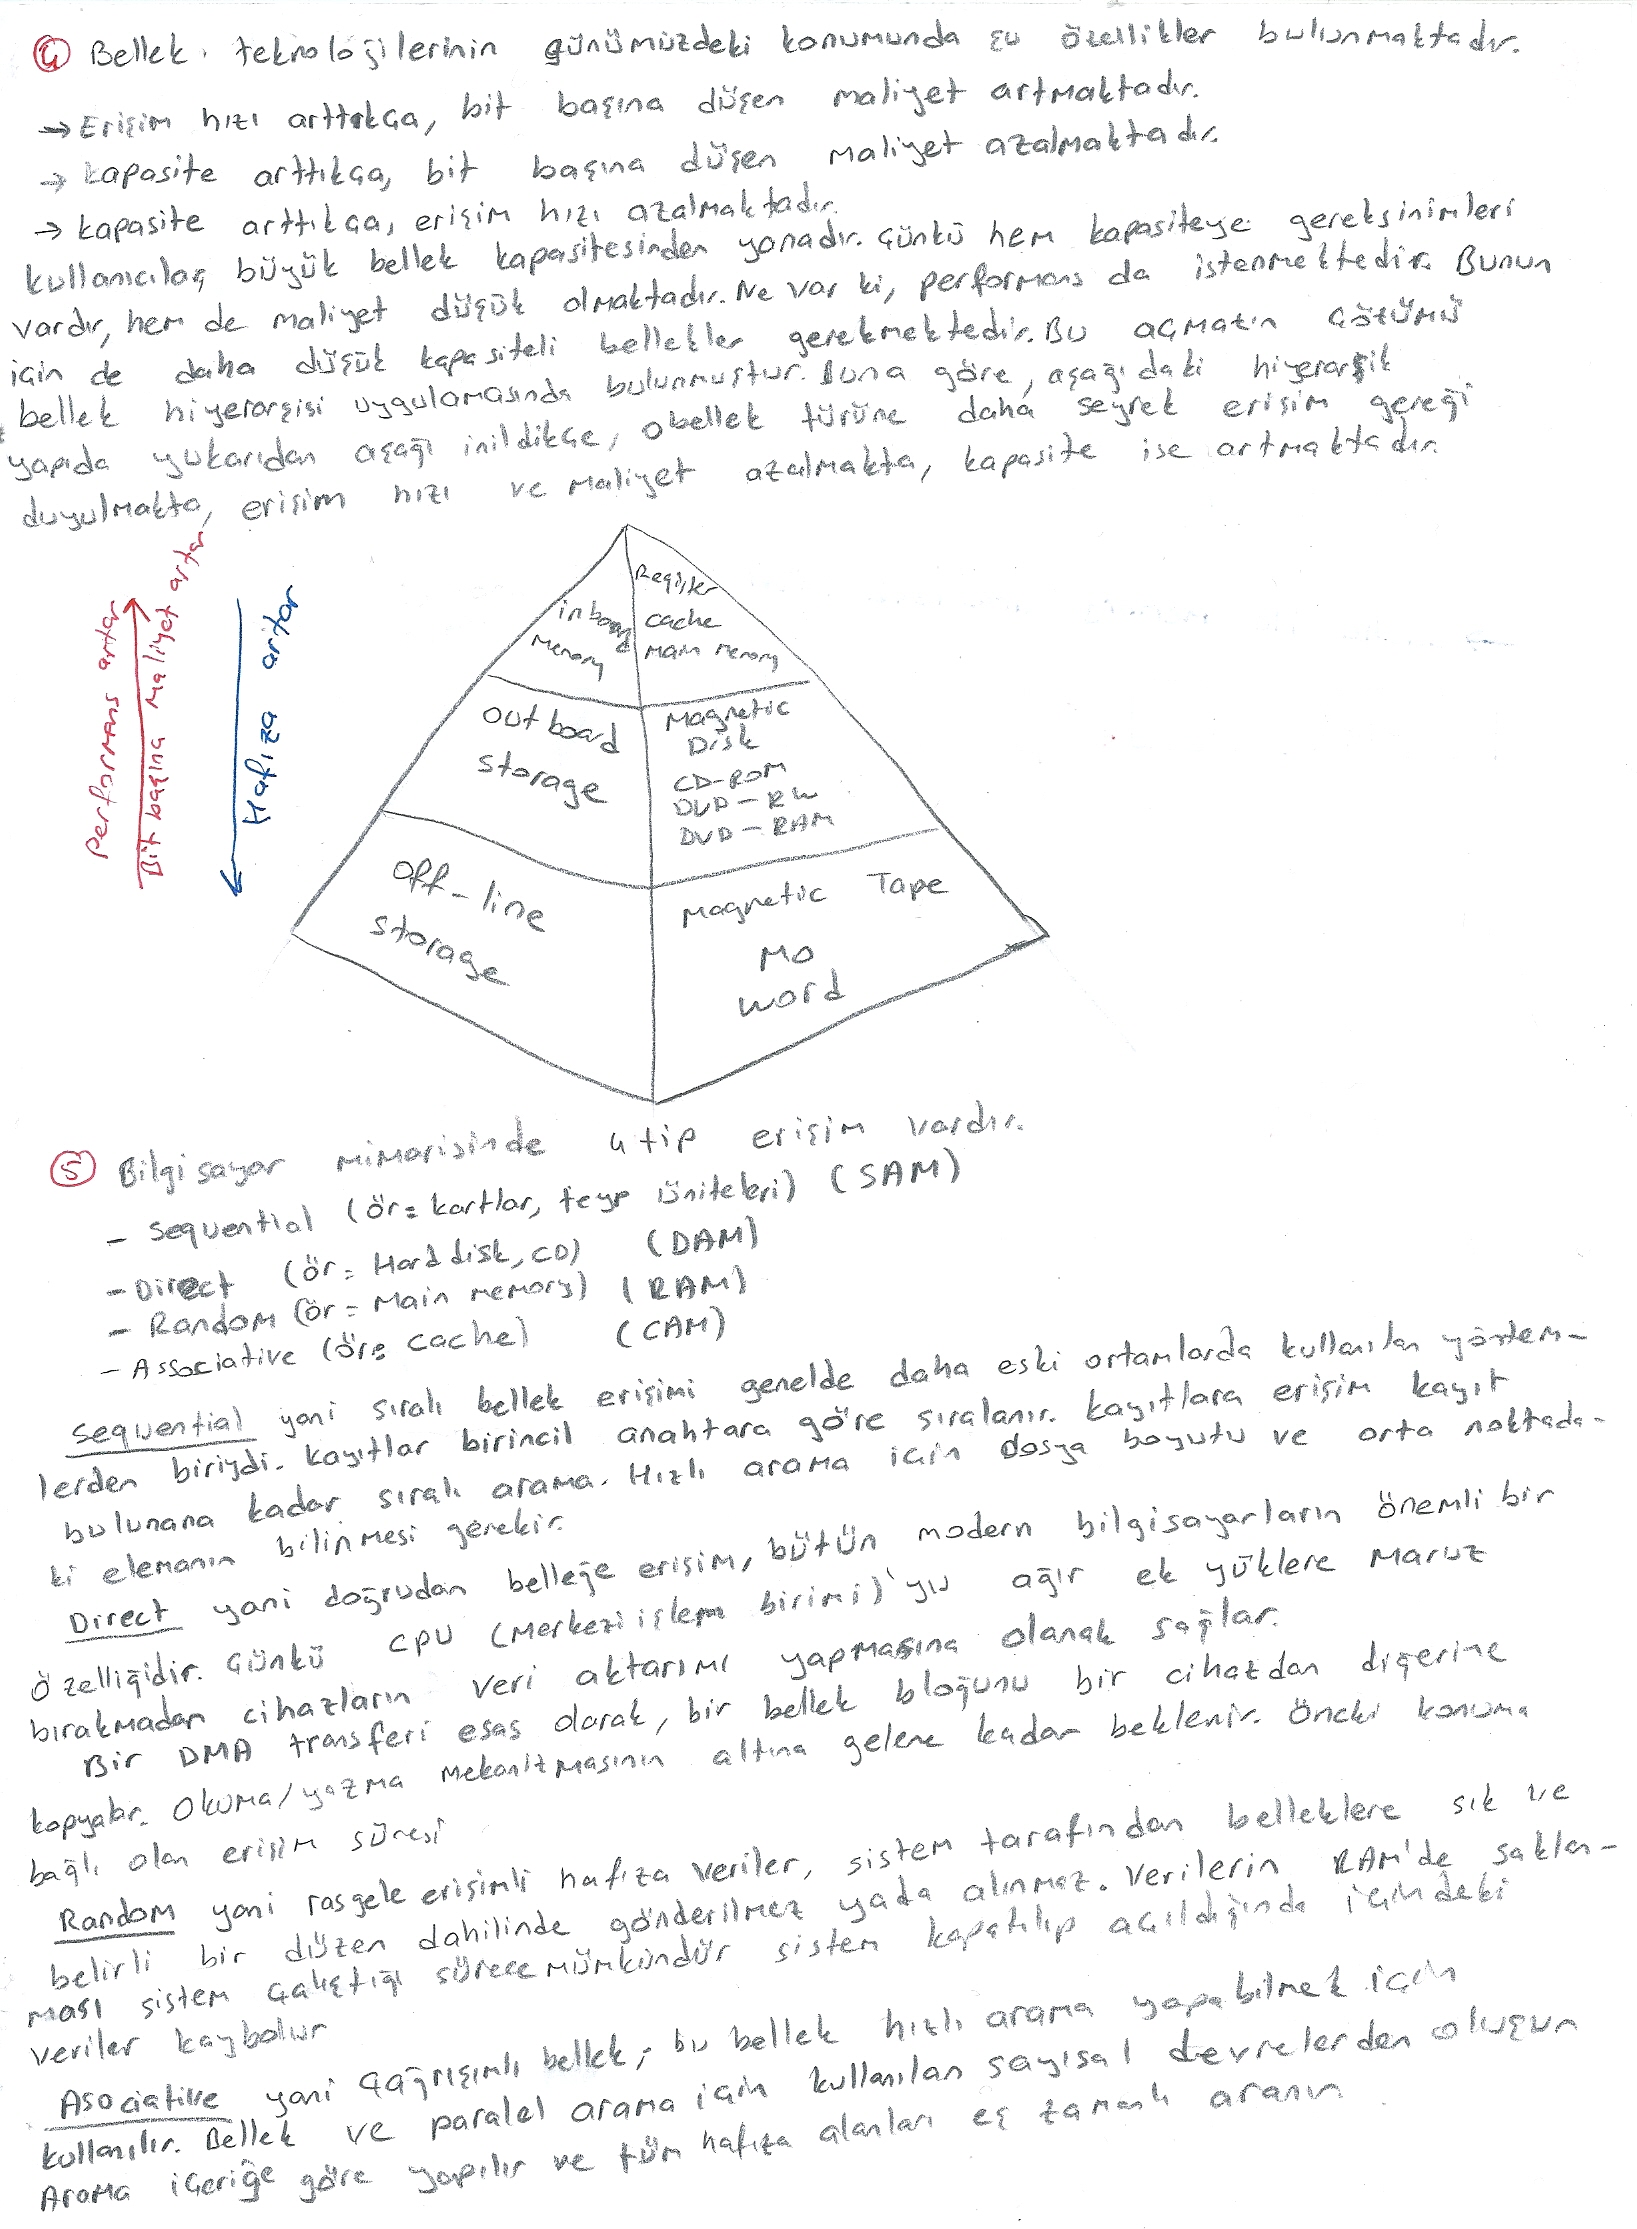 ④ Bellek teknolojilerinin günümüzdeki konumunda şu özellikler bulunmaktadır.
→ Erişim hızı arttıkça, bit başına düşen maliyet artmaktadır.
→ kapasite arttıkça, bit başına düşen maliyet azalmaktadır.
→ kapasite arttıkça, erişim hızı azalmaktadır.
kullanıcılar, büyük bellek kapasitesinden yanadır. Çünkü hem kapasiteye gereksinimleri
vardır, hem de maliyet düşük olmaktadır. Ne var ki, performans da istenmektedir. Bunun
için de daha düşük kapasiteli bellekler gerekmektedir. Bu açmazın çözümü
bellek hiyerarşisi uygulamasında bulunmuştur. Buna göre, aşağıdaki hiyerarşik
yapıda yukarıdan aşağı inildikçe, o bellek türüne daha seyrek erişim gereği
duyulmakta, erişim hızı ve maliyet azalmakta, kapasite ise artmaktadır.
Performans artar
Bit başına maliyet artar
Hafıza artar
inboard
memory
Register
cache
main memory
outboard
storage
Magnetic
Disk
CD-ROM
DVD-RW
DVD-RAM
Off-line
storage
Magnetic Tape
MO
word
⑤ Bilgisayar mimarisinde 4 tip erişim vardır.
- Sequential (ör= kartlar, teyp üniteleri) (SAM)
- Direct (ör= Hard disk, CD) (DAM)
- Random (ör= Main memory) (RAM)
- Associative (ör= cache) (CAM)
Sequential yani sıralı bellek erişimi genelde daha eski ortamlarda kullanılan yöntem-
lerden biriydi. Kayıtlar birincil anahtara göre sıralanır. Kayıtlara erişim kayıt
bulunana kadar sıralı arama. Hızlı arama için dosya boyutu ve orta noktada-
ki elemanın bilinmesi gerekir.
Direct yani doğrudan belleğe erişim, bütün modern bilgisayarların önemli bir
özelliğidir. Çünkü CPU (Merkezi işlem birimi)'yu ağır ek yüklere maruz
bırakmadan cihazların veri aktarımı yapmasına olanak sağlar.
Bir DMA transferi esas olarak, bir bellek bloğunu bir cihazdan diğerine
kopyalar. Okuma/yazma mekanizmasının altına gelene kadar beklenir. Önceki konuma
bağlı olan erişim süresi
Random yani rasgele erişimli hafıza veriler, sistem tarafından belleklere sık ve
belirli bir düzen dahilinde gönderilmez yada alınmaz. Verilerin RAM'de saklan-
ması sistem çalıştığı sürece mümkündür sistem kapatılıp açıldığında içindeki
veriler kaybolur
Asociative yani çağrışımlı bellek; bu bellek hızlı arama yapabilmek için
kullanılır. Bellek ve paralel arama için kullanılan sayısal devrelerden oluşur
Arama içeriğe göre yapılır ve tüm hafıza alanları eş zamanlı aranır